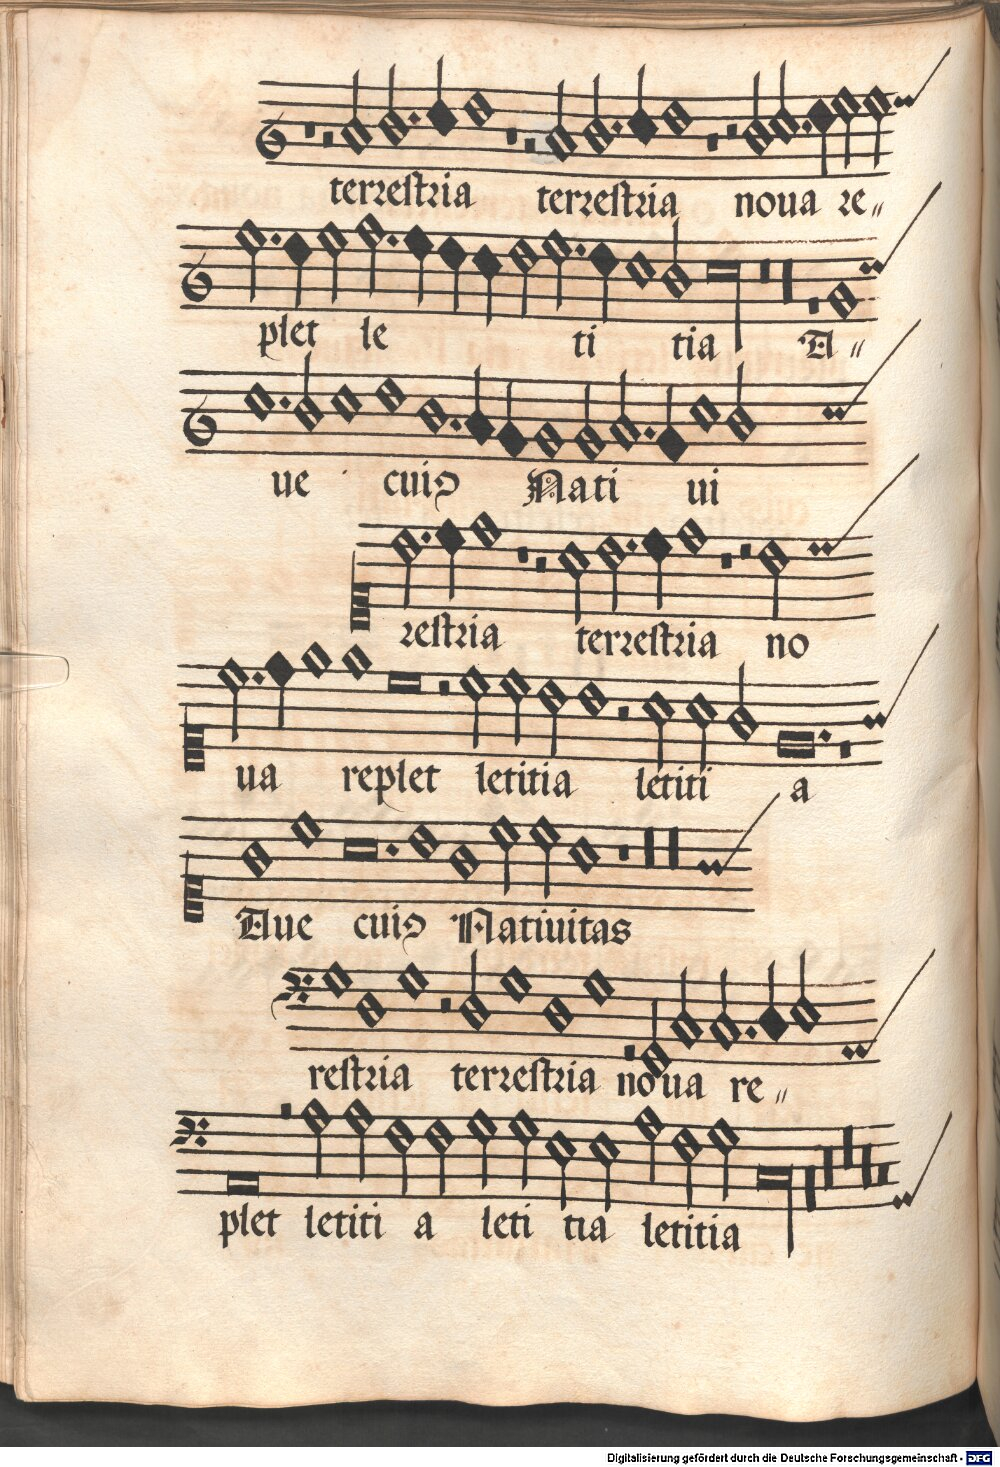 terrestria terrestria noua re〃
plet le ti tia A〃
ue cuiꝰ Nati ui
restria terrestria no
ua replet letitia letiti a
Aue cuiꝰ Natiuitas
restria terrestria noua re〃
plet letiti a leti tia letitia
Digitalisierung gefördert durch die Deutsche Forschungsgemeinschaft - DFG